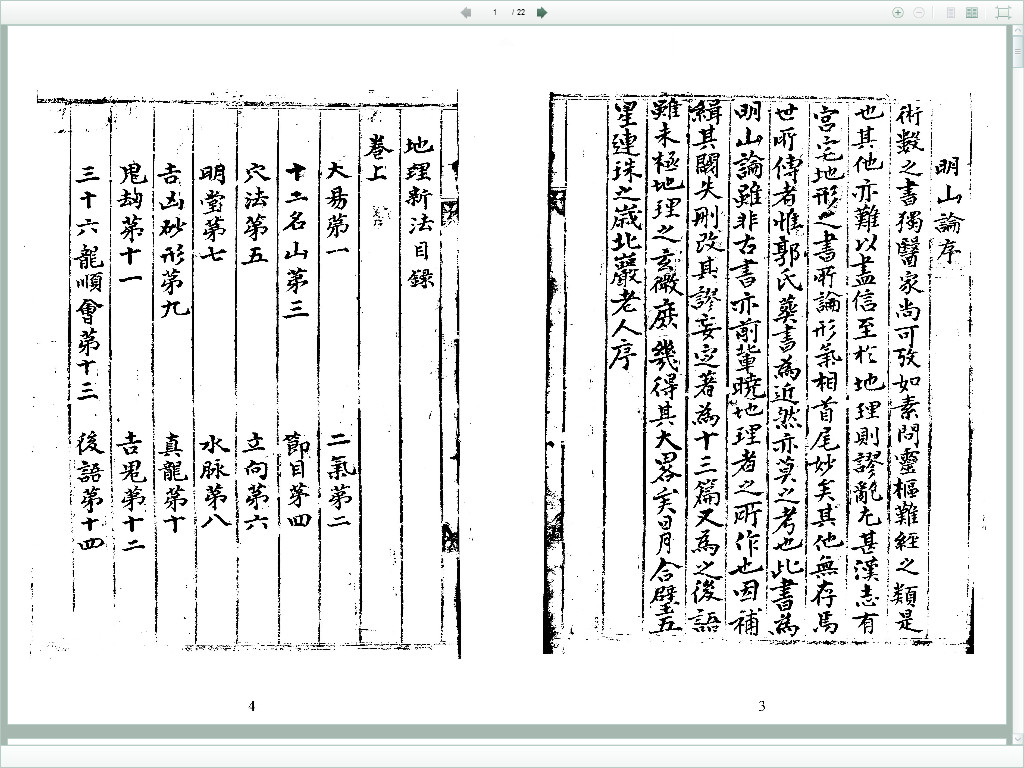 1 / 22
明山論序
術數之書獨醫家尚可攷如素問靈樞難經之類是
也其他亦難以盡信至於地理則謬亂尤甚漢志有
宮宅地形之書所論形氣相首尾妙矣其他無存焉
世所傳者惟郭氏葬書為近然亦莫之考也此書為
明山論雖非古書亦前輩曉地理者之所作也因補
緝其闕失刪改其謬妄定著為十三篇又為之後語
雖未極地理之玄微庶幾得其大畧矣日月合璧五
星連珠之歲北巖老人序
3
地理新法目錄
卷上
大易第一 二氣第二
十二名山第三 節目第四
穴法第五 立向第六
明堂第七 水脉第八
吉凶砂形第九 真龍第十
鬼劫第十一 吉鬼第十二
三十六龍順會第十三 後語第十四
4